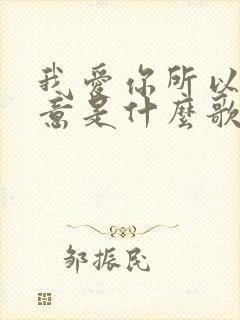 我爱你所以
意是什麼歌
邹振民